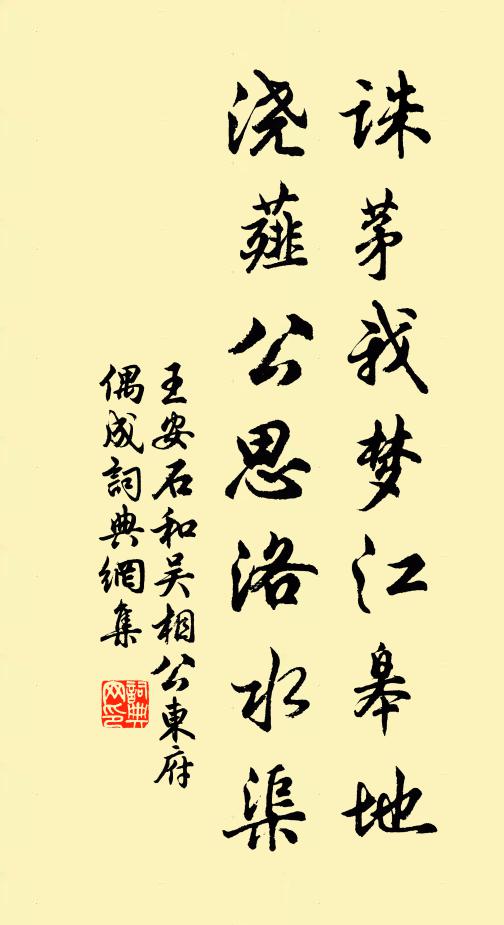 诛茅我梦江皋地
浇薤公思洛水渠
王安石和吴相公東府
偶成詞典網集
詞典网印